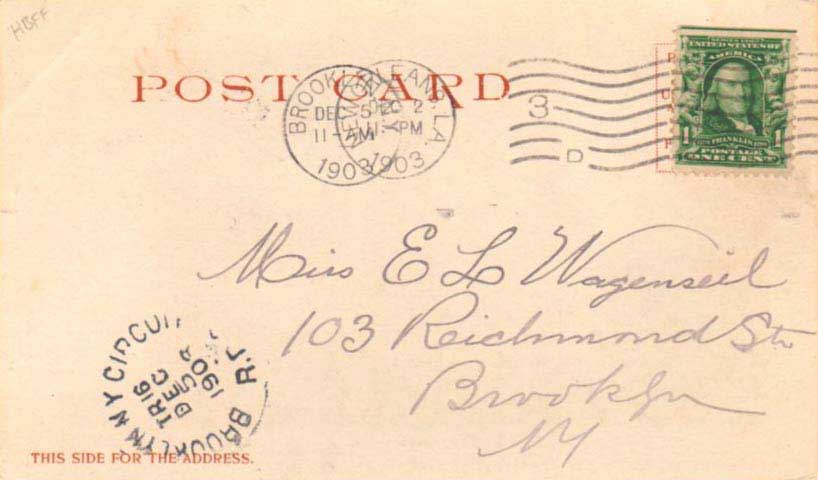 HBFF
POST CARD
BROOKLYN, N.Y.
DEC 5
11-AM
1903
NEW ORLEANS, LA.
DEC 2
11-PM
1903
3
D
SERIES 1902
UNITED STATES OF
AMERICA
1 FRANKLIN 1
POSTAGE
ONE CENT
Miss E L Wagenseil
103 Reichmond St
Brooklyn
NY
BROOKLYN N Y CIRCUIT
TR 16
DEC
5
190
R.P.
THIS SIDE FOR THE ADDRESS.